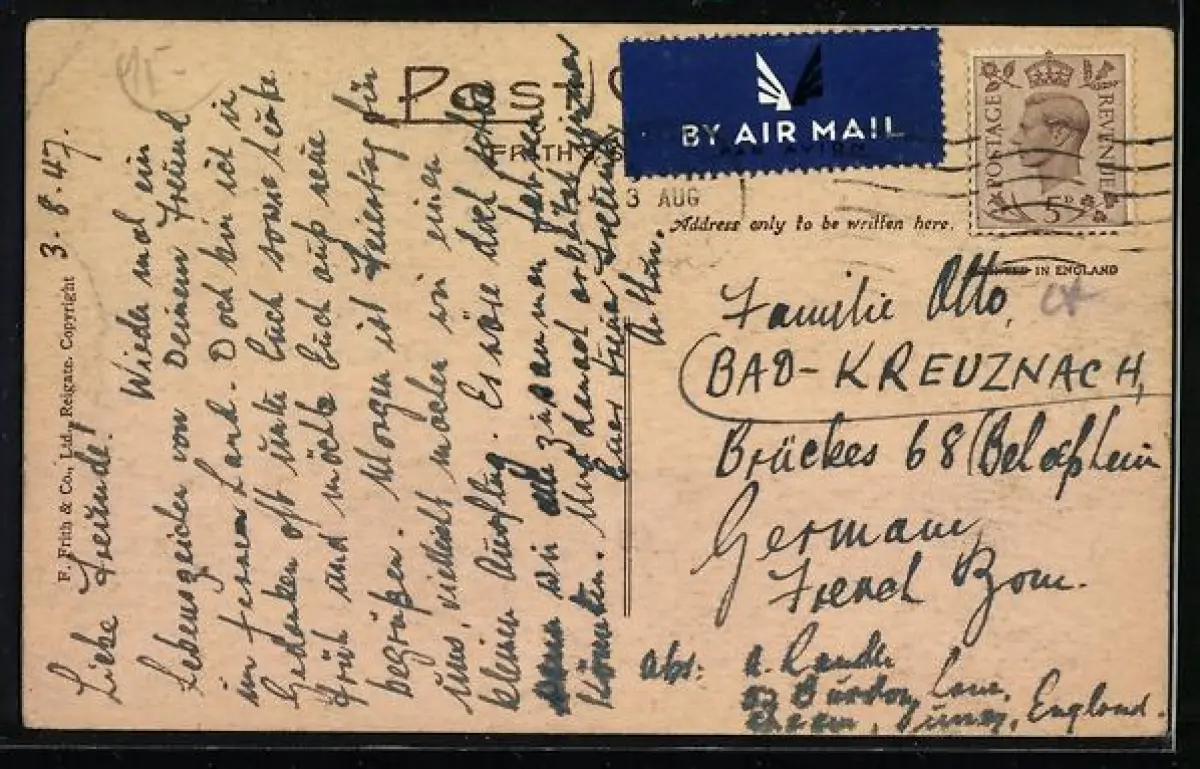 3.-8.-47.
Liebe Freunde!
Wieder mal ein
Lebenszeichen von Deinem Freund
im fernen Land. Doch bin ich in
Gedanken oft unter Euch sowie heute
früh und möchte Euch aufs neue
begrüßen. Morgen ist Feiertag für
uns, vielleicht machen wir einen
kleinen Ausflug. Es wäre doch
wenn wir alle zusammen
könnten. Und
Euer Freund
Anton.
F. Frith & Co., Ltd., Reigate. Copyright
POST
FRITH
BY AIR MAIL
PAR AVION
3 AUG
POSTAGE
REVENUE
5D
Address only to be written here.
PRINTED IN ENGLAND
Familie Otto,
BAD-KREUZNACH,
Brückes 68
Germany
French Zone.
abs: A.
Burdon Lane,
Cheam, Surrey, England.